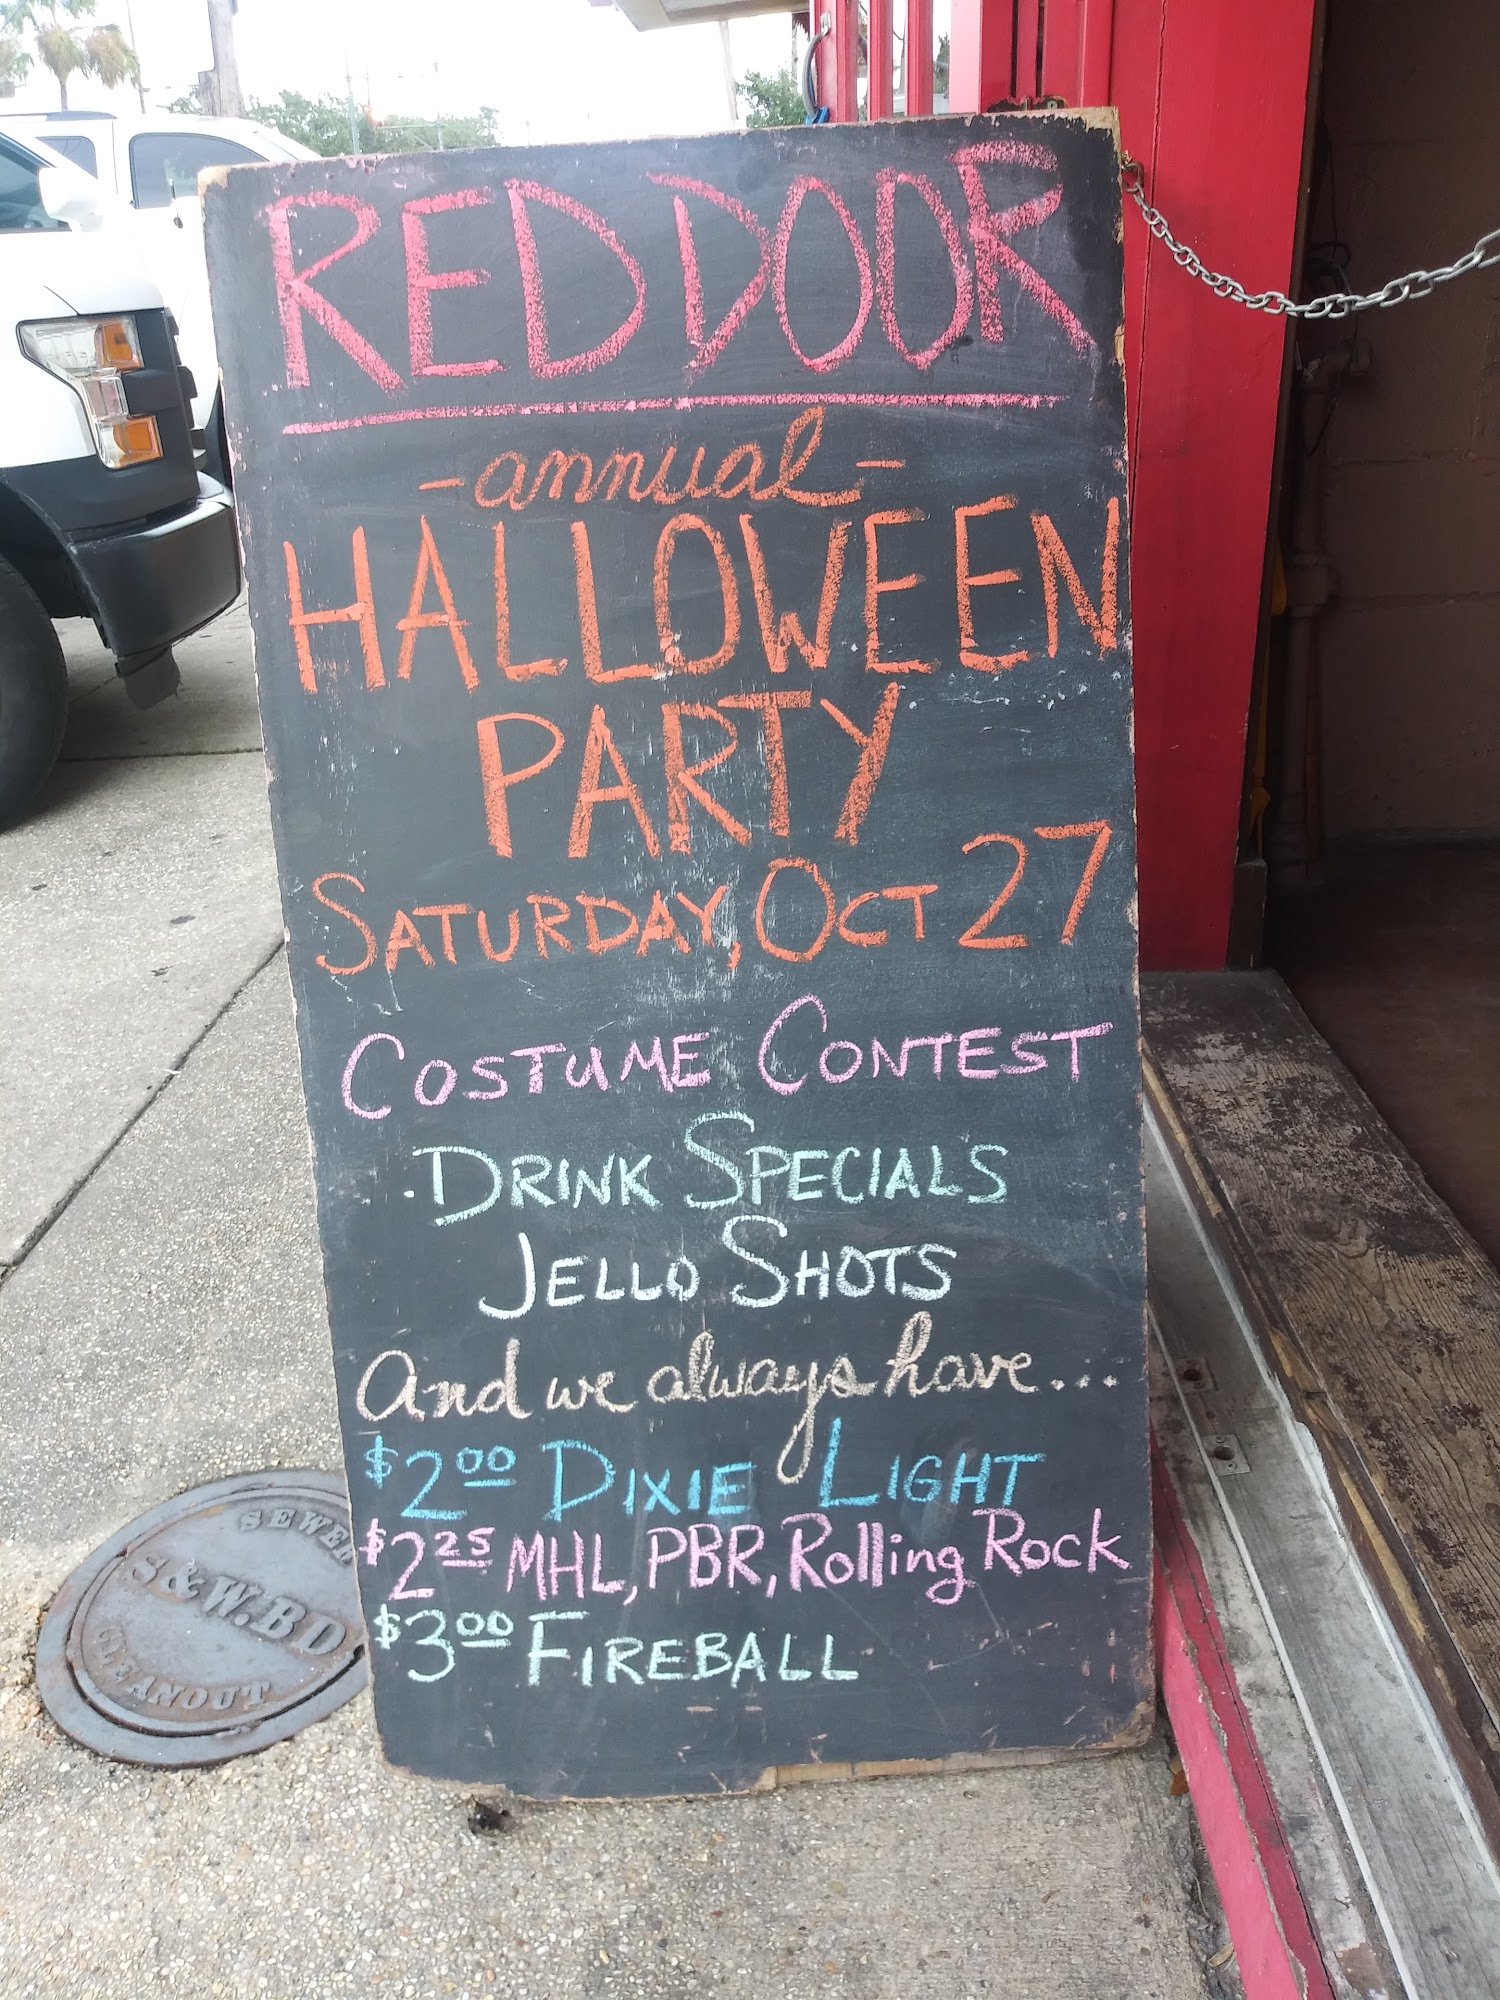 RED DOOR
- annual -
HALLOWEEN
PARTY
SATURDAY, OCT 27
COSTUME CONTEST
DRINK SPECIALS
JELLO SHOTS
And we always have...
$2.00 DIXIE LIGHT
$2.25 MHL, PBR, Rolling Rock
$3.00 FIREBALL
SEWER
S&W.BD
CLEANOUT